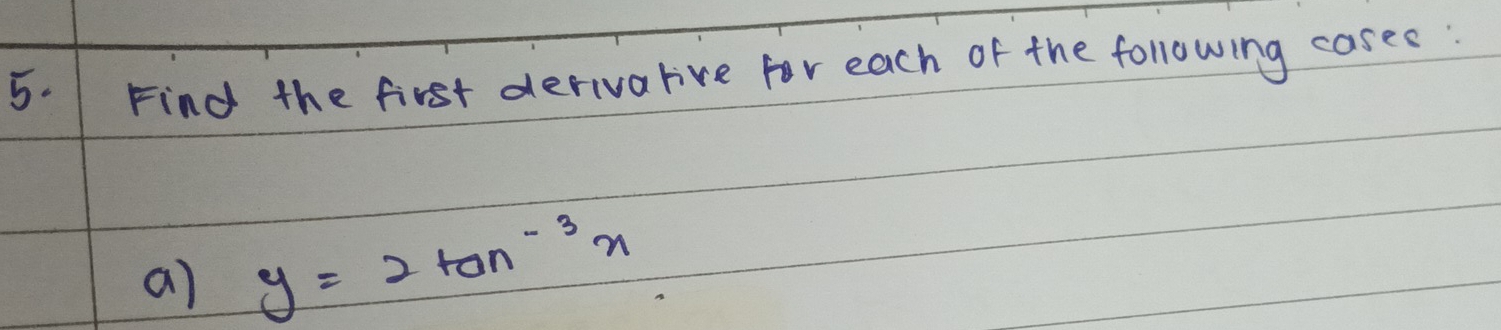 5. Find the first derivative for each of the following cases :
a) y = 2 tan⁻³ x